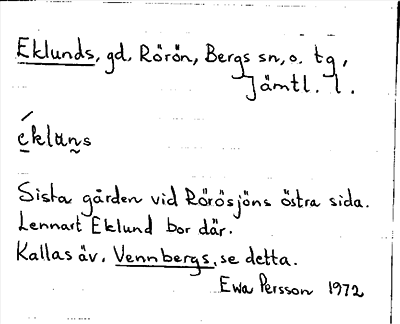 Eklunds, gd, Rörön, Bergs sn, o. tg,
Jämtl. l.
ékluns
Sista gården vid Rörösjöns östra sida.
Lennart Eklund bor där.
Kallas äv. Vennbergs, se detta.
Ewa Persson 1972